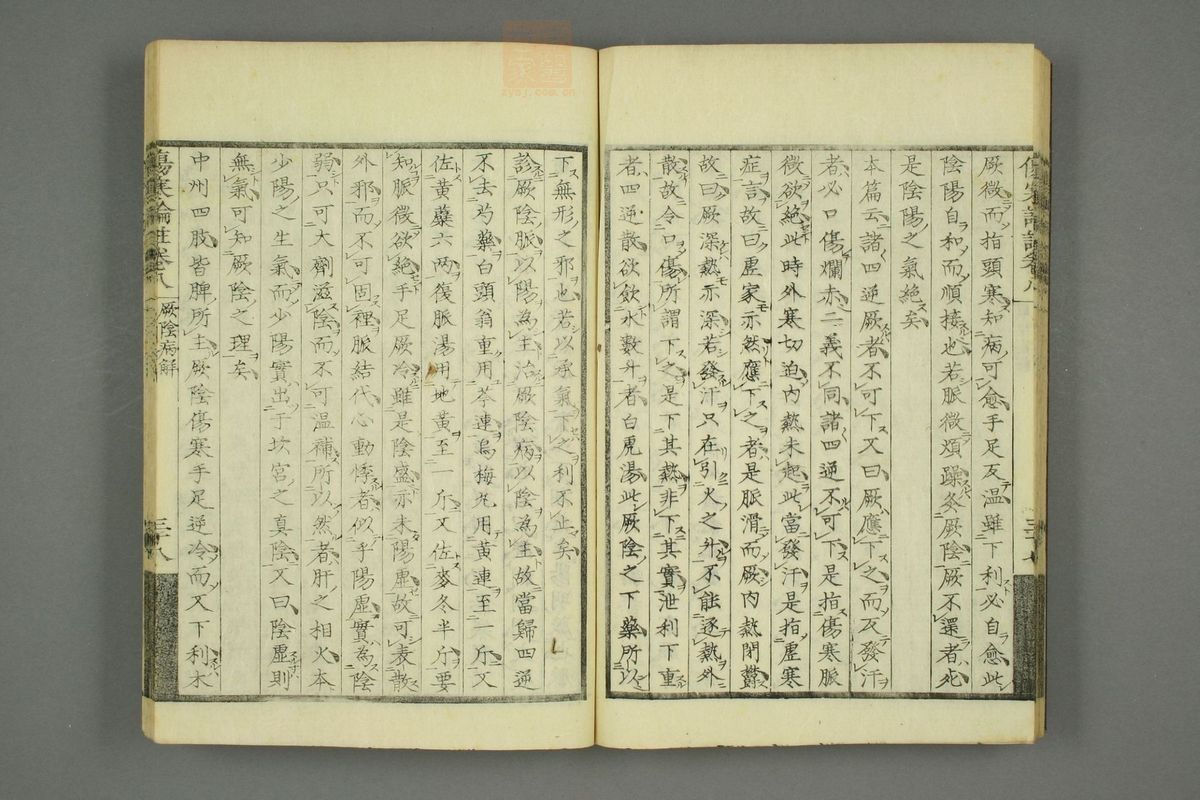 厥微而指頭寒知病可愈手足反溫雖下利必自愈此
陰陽自和而順接也若脈微煩躁灸厥陰厥不還者死
是陰陽之氣絕矣
本篇云諸四逆厥者不可下又曰厥應下之而反發汗
者必口傷爛赤二義不同諸四逆不可下是指傷寒脈
微欲絕此時外寒切迫內熱未起此當發汗是指虛寒
症言故曰虛家亦然應下之者是脈滑而厥內熱閉鬱
故曰厥深熱亦深若發汗只在引火之升不能逐熱外
散故令口傷所謂下之是下其熱非下其實泄利下重
者四逆散欲飲水數升者白虎湯此厥陰之下藥所以
下無形之邪也若以承氣下之利不止矣
診厥陰脈以陽為主治厥陰病以陰為主故當歸四逆
不去芍藥白頭翁重用芩連烏梅丸用黃連至一斤又
佐黃蘗六兩復脈湯用地黃至一斤又佐麥冬半斤要
知脈微欲絕手足厥冷雖是陰盛亦未陽虛故可表散
外邪而不可固裡脈結代心動悸者似乎陽虛實為陰
弱只可大劑滋陰而不可溫補所以然者肝之相火本
少陽之生氣而少陽實出于坎宮之真陰又曰陰虛則
無氣可知厥陰之理矣
中州四肢皆脾所主厥陰傷寒手足逆冷而又下利木
傷寒論註卷八
厥陰病解
三十八
zysj.com.cn